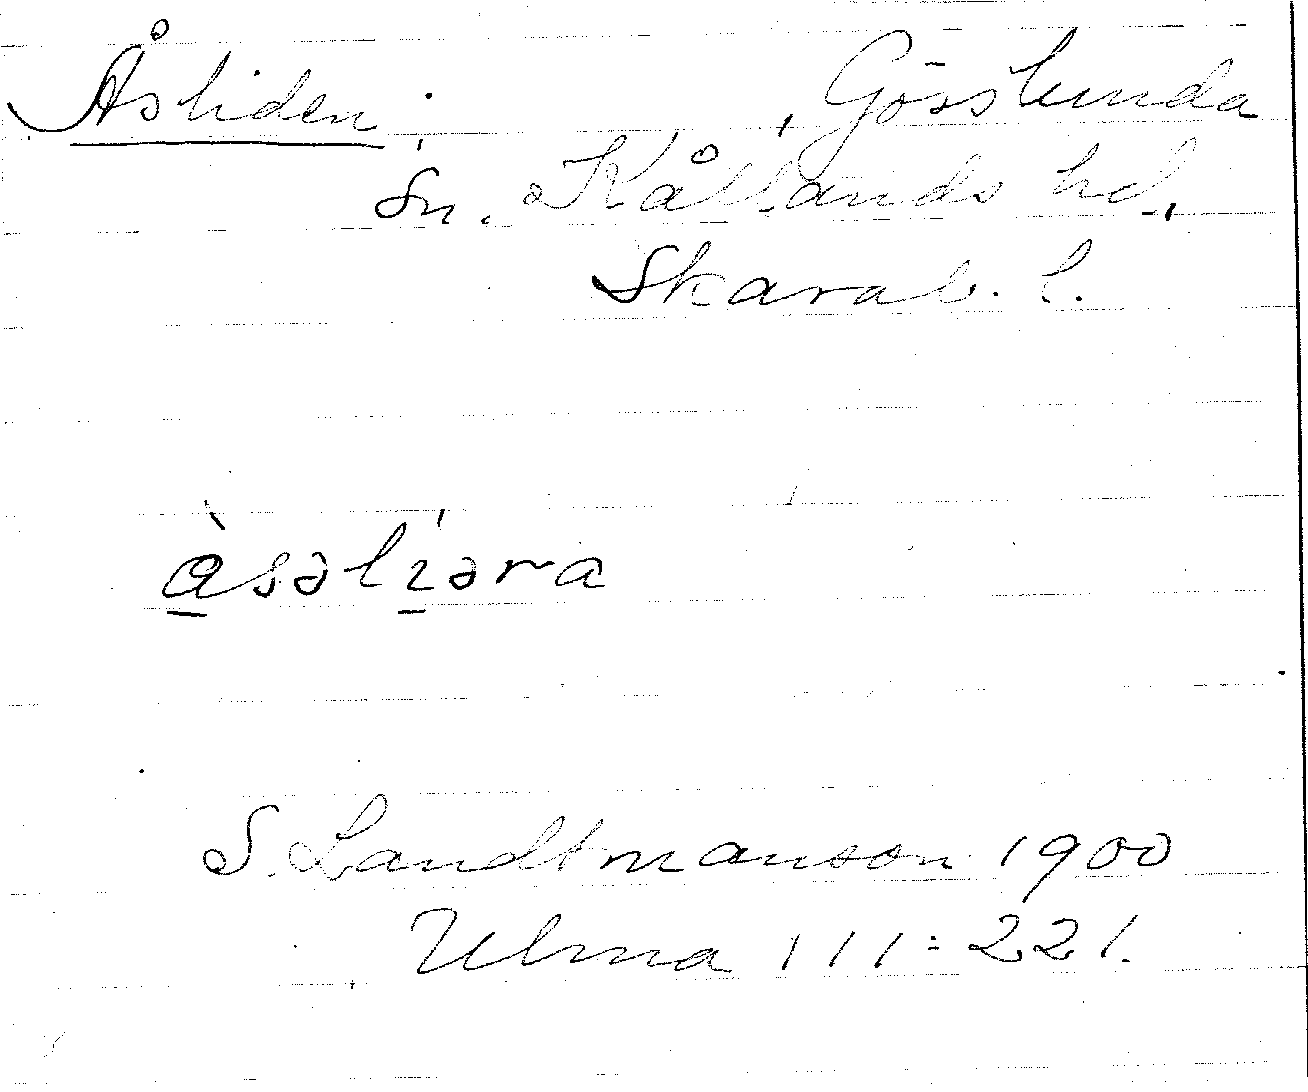 Åsliden. Gösslunda
sn. Kållands hd.
Skarab. l.
à̱səlí̱əra
S. Landtmanson 1900
Ulma 111:221.